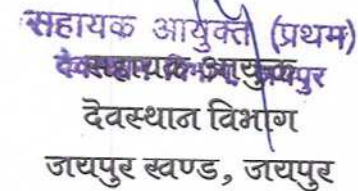 सहायक आयुक्त (प्रथम)
देवस्थान विभाग, जयपुर
सहायक आयुक्त
देवस्थान विभाग
जयपुर खण्ड, जयपुर